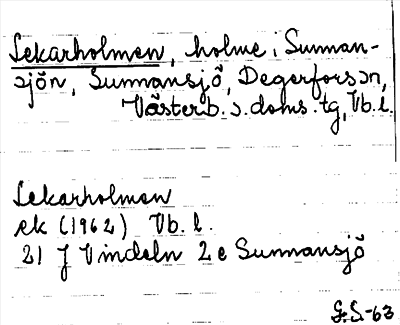 Lekarholmen, holme i Sunnan-
sjön, Sunnansjö, Degerfors sn,
Västerb. s. doms. tg, Vb. l.
Lekarholmen
ek (1962) Vb. l.
21 J Vindeln 2 e Sunnansjö
G.S.-63